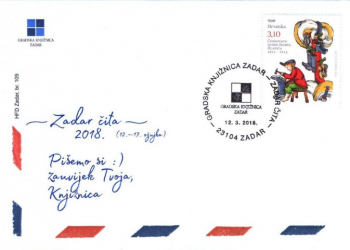 GRADSKA KNJIŽNICA
ZADAR
HFD Zadar, br. 109
Zadar čita
2018. (12.–17. ožujka)
Pišemo si :)
zauvijek Tvoja,
Knjižnica
GRADSKA KNJIŽNICA ZADAR – ZADAR ČITA –
GRADSKA KNJIŽNICA
ZADAR
12. 3. 2018.
– 23104 ZADAR –
Hrvatska
3,10